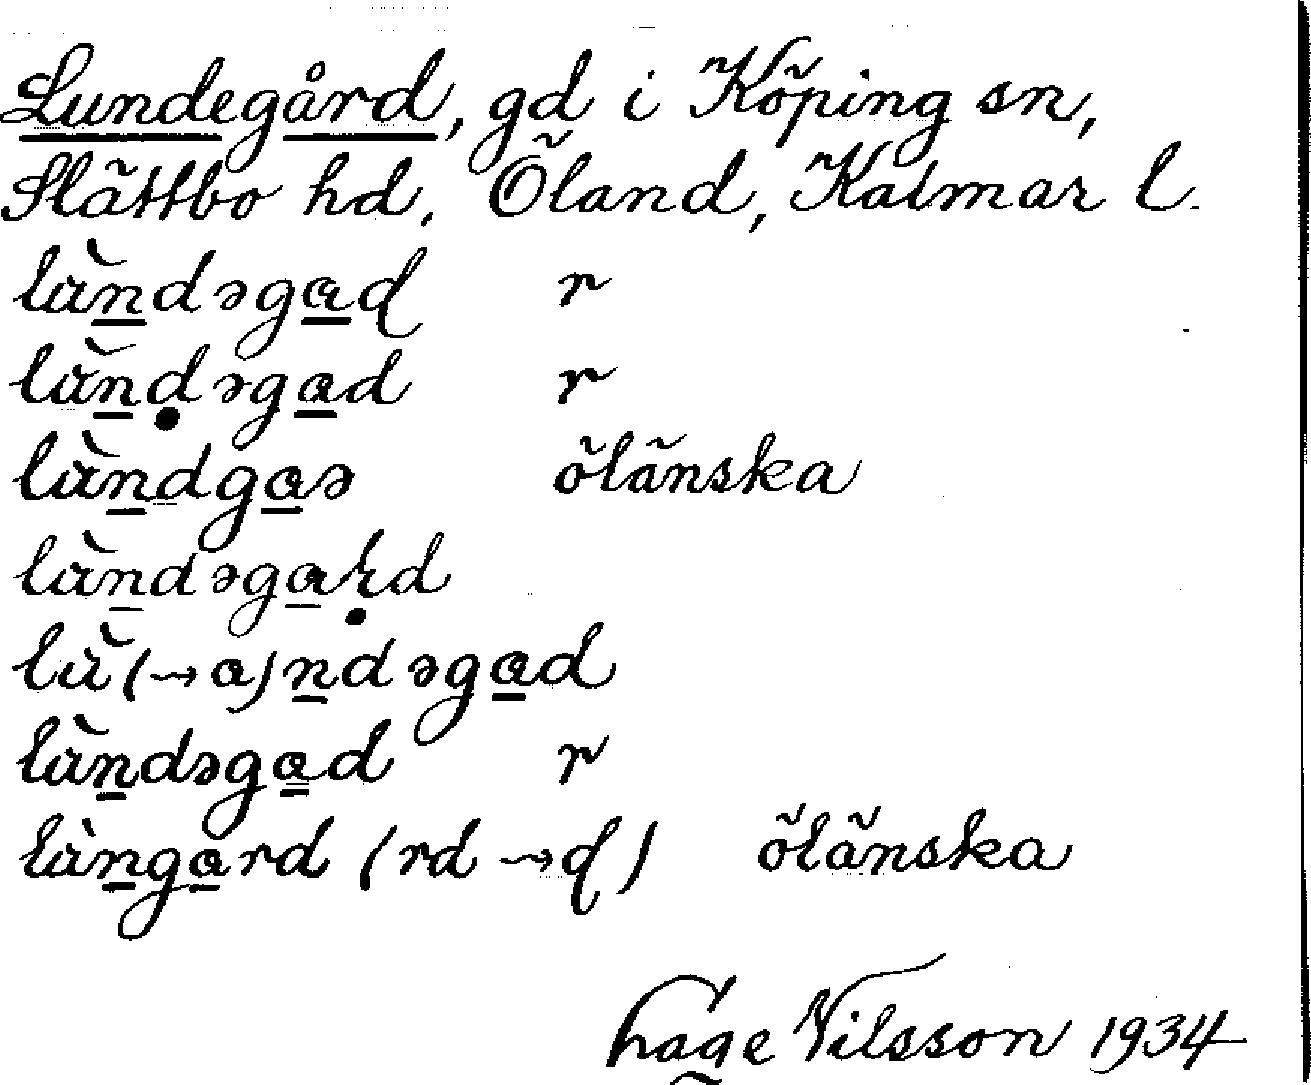 Lundegård, gd i Köping sn,
Slättbo hd, Öland, Kalmar l.
làndəgaɖ r
làndəgad r
làndgaə öländska
làndəgaɽd
lù(→a)ndəgad
làndəgad r
làngard (rd→ɖ) öländska
Hage Nilsson 1934